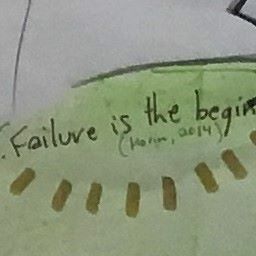 Failure is the begin
(Horn, 2014)